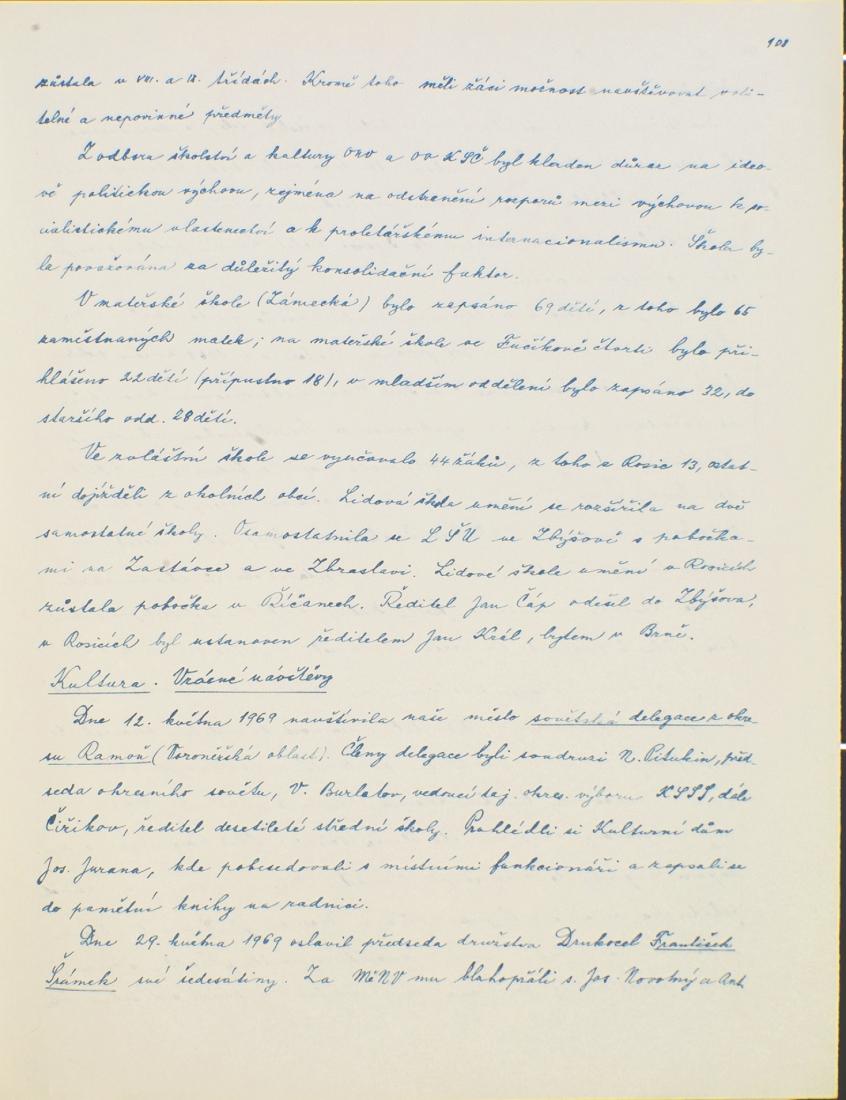 108
zůstala v VIII. a IX. třídách. Kromě toho měli žáci možnost navštěvovat voli-
telné a nepovinné předměty
Z odboru školství a kultury ONV a OV KSČ byl kladen důraz na ideo-
vě politickou výchovu, zejména na odstranění rozporů mezi výchovou k so-
cialistickému vlastenectví a k proletářskému internacionalismu. Škola by-
la považována za důležitý konsolidační faktor.
V mateřské škole (Zámecká) bylo zapsáno 69 dětí, z toho bylo 65
zaměstnaných matek; na mateřské škole ve Fučíkově čtvrti bylo při-
hlášeno 22 dětí (přípustno 18), v mladším oddělení bylo zapsáno 32, do
staršího odd. 28 dětí.
Ve zvláštní škole se vyučovalo 44 žáků, z toho z Rosic 13, ostat-
ní dojížděli z okolních obcí. Lidová škola umění se rozšířila na dvě
samostatné školy. Osamostatnila se LŠU ve Zbýšově s pobočka-
mi na Zastávce a ve Zbraslavi. Lidové škole umění v Rosicích
zůstala pobočka v Říčanech. Ředitel Jan Čáp odešel do Zbýšova,
v Rosicích byl ustanoven ředitelem Jan Král, bytem v Brně.
Kultura. Vzácné návštěvy
Dne 12. května 1969 navštívila naše město sovětská delegace z okre-
su Ramoň (Voroněžská oblast). Členy delegace byli soudruzi N. Pitukin, před-
seda okresního sovětu, V. Burlatov, vedoucí taj. okres. výboru KSSS, dále
Čiřikov, ředitel desetileté střední školy. Prohlédli si Kulturní dům
Jos. Jurana, kde pobesedovali s místními funkcionáři a zapsali se
do pamětní knihy na radnici.
Dne 29. května 1969 oslavil předseda družstva Drukocel František
Šrámek své šedesátiny. Za MěNV mu blahopřáli s. Jos. Novotný a Ant.